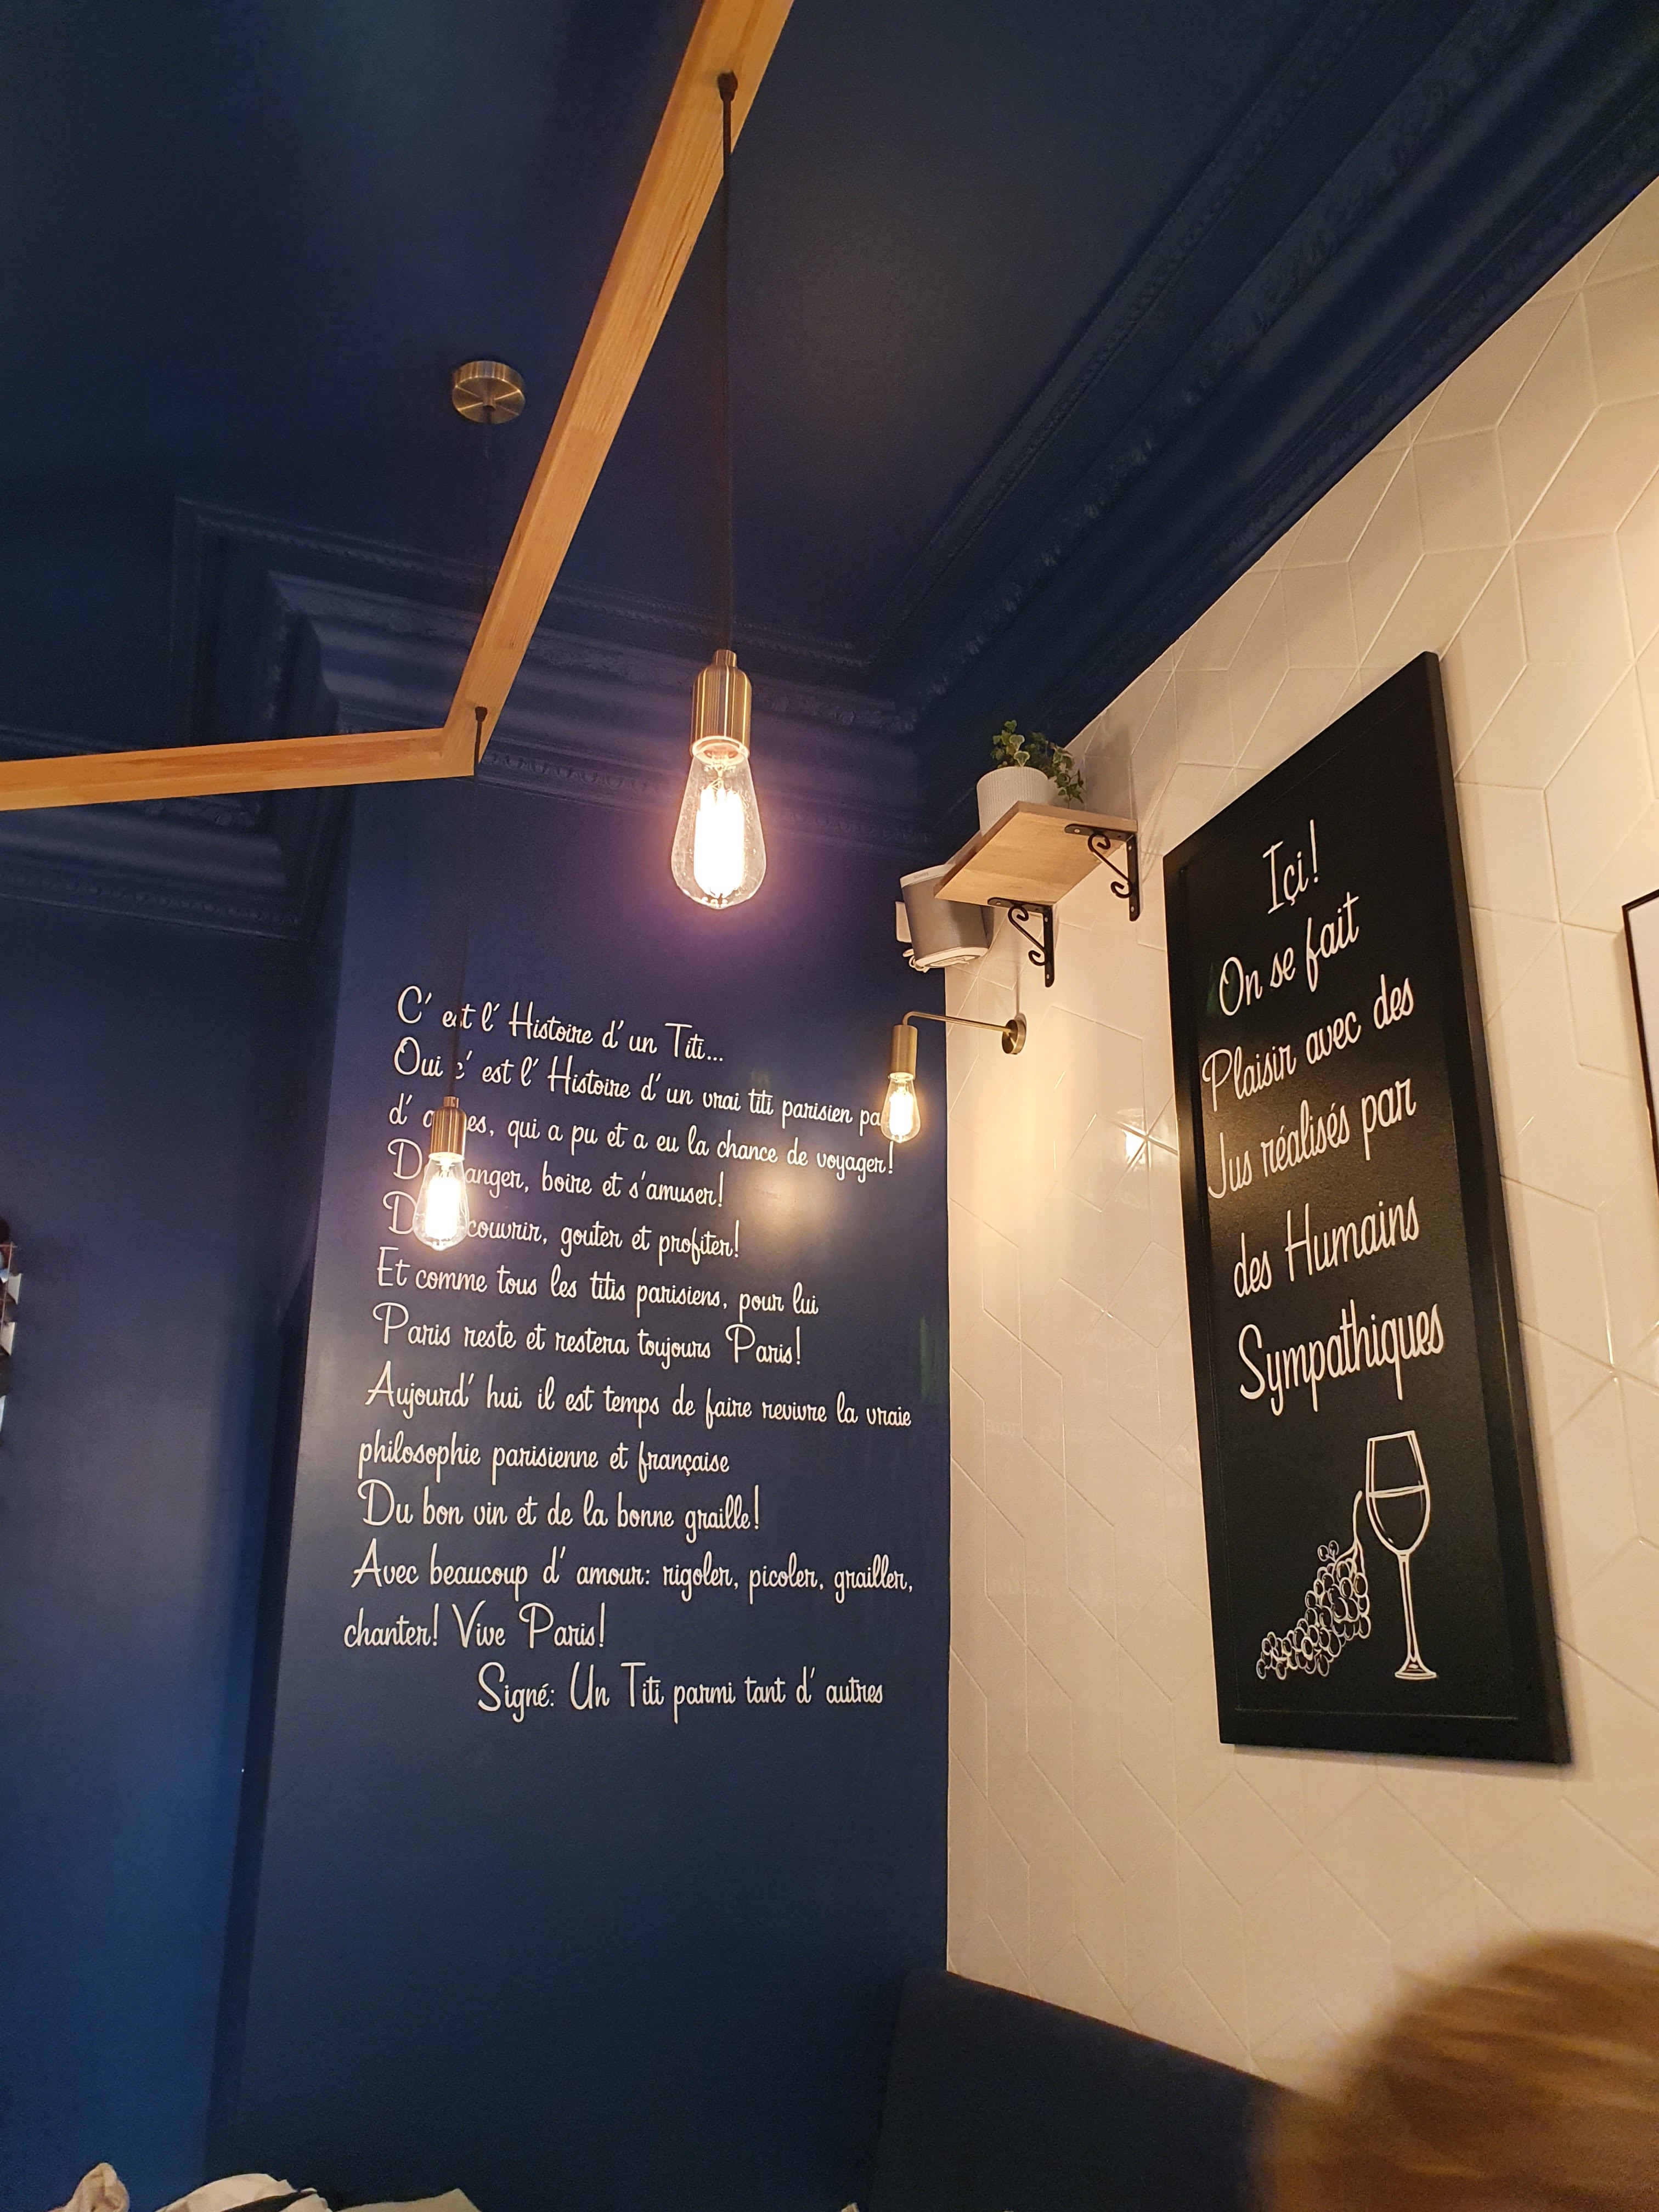 C' est l' Histoire d' un Titi...
Oui c' est l' Histoire d' un vrai titi parisien
d' qui a pu et a eu la chance de voyager!
boire et s'amuser!
gouter et profiter!
Et comme tous les titis parisiens, pour lui
Paris reste et restera toujours Paris!
Aujourd' hui il est temps de faire revivre la vraie
philosophie parisienne et française
Du bon vin et de la bonne graille!
Avec beaucoup d' amour: rigoler, picoler, grailler,
chanter! Vive Paris!
Signé: Un Titi parmi tant d' autres
Içi!
On se fait
Plaisir avec des
Jus réalisés par
des Humains
Sympathiques